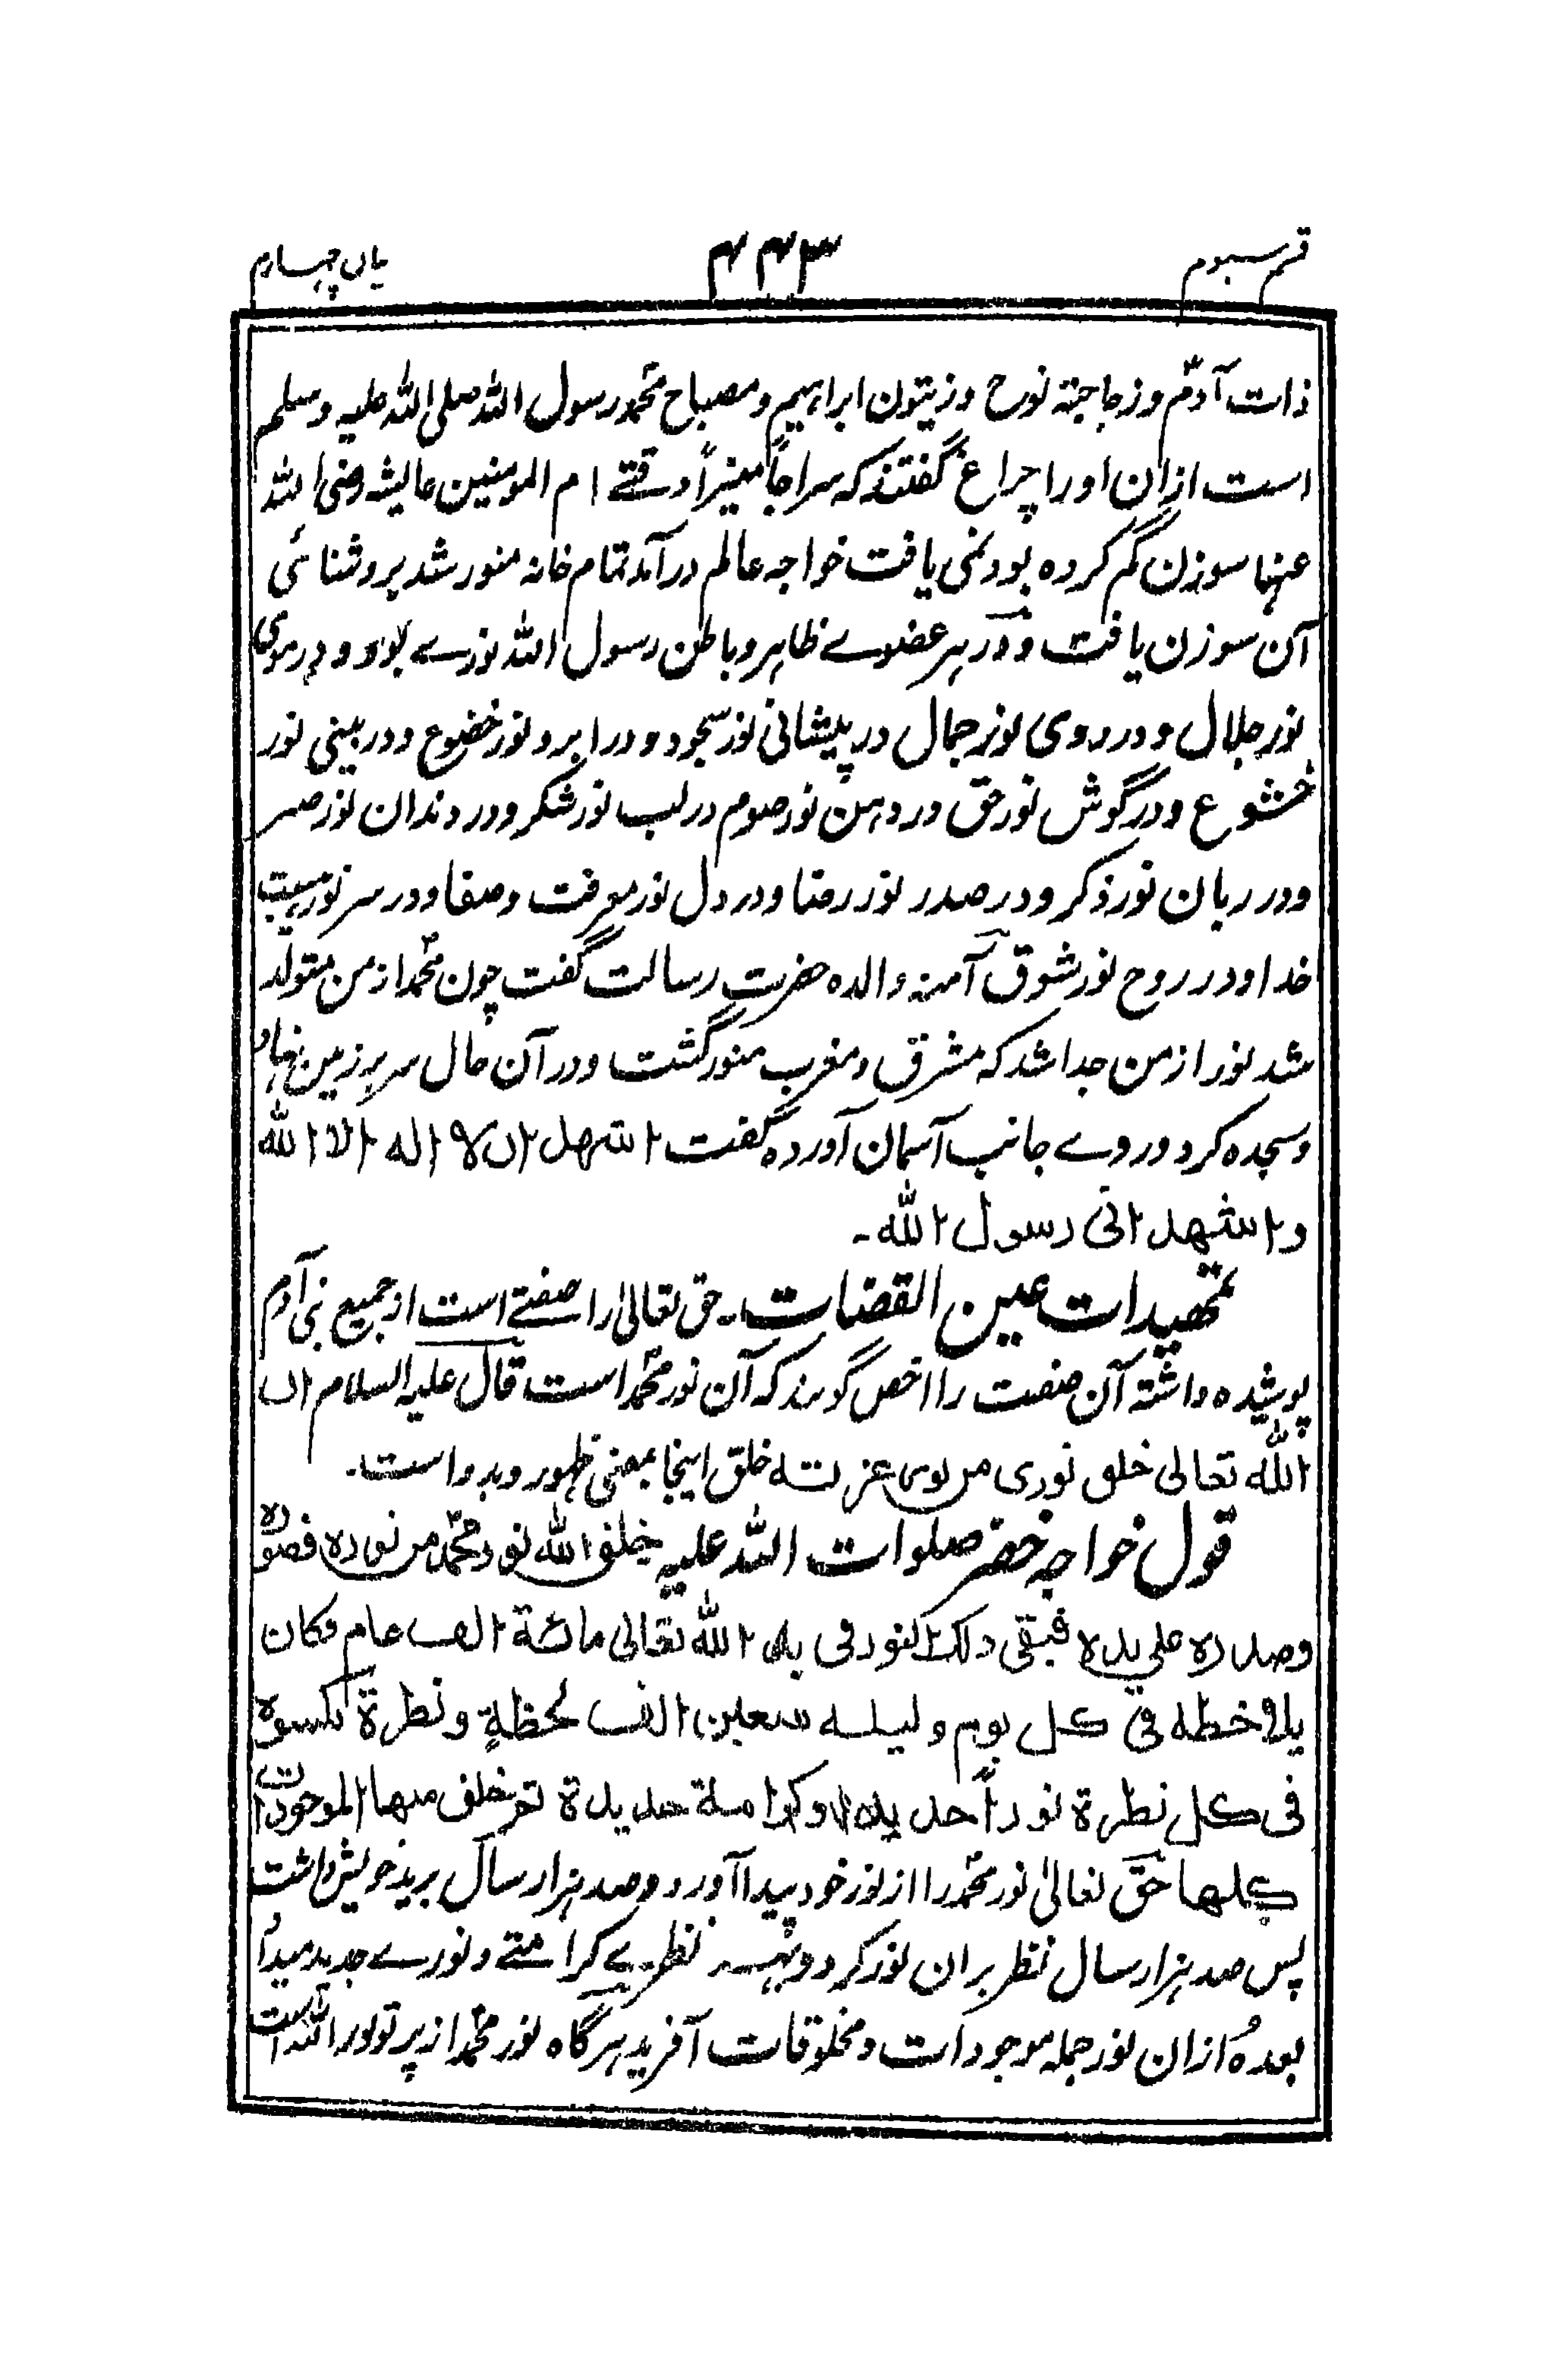 قسم سیوم ۴۴۳ بیان چہارم
ذات آدمؑ وزجاجۃ نوح وزیتون ابراہیم ومصباح محمدؐ رسول اللہ صلی اللہ علیہ وسلم
است ازان اورا چراغ گفتند کہ سراجاً منیراً وقتے ام المومنین عایشہ رضی اللہ
عنہا سوزن گم کردہ بود نمی یافت خواجہ عالم درآمد تمام خانہ منور شد پروشنائی
آن سوزن یافت ودر ہر عضوے ظاہر وباطن رسول اللہ نورے بود ودرموی
نور جلال ودرروی نور جمال در پیشانی نور سجود ودر ابرو نور خضوع ودربینی نور
خشوع ودرگوش نور حق ودر دہن نور صوم درلب نور شکر ودر دندان نور صبر
ودر زبان نور ذکر ودر صدر نور رضا ودر دل نور معرفت وصفا ودر سر نور ہیبت
خدا ودر روح نور شوق آمنہ والدہ حضرت رسالت گفت چون محمدؐ از من متولد
شد نور از من جدا شد کہ مشرق ومغرب منور گشت ودر آن حال سر بر زمین نہاد
وسجدہ کرد وروے جانب آسمان آوردہ گفت اشهد ان لا اله الا الله
واشهد انی رسول الله ۔
تمهیدات عین القضات ۔ حق تعالیٰ را صفتے است از جمیع بنی آدم
پوشیدہ داشتہ آن صفت را اخص گویند کہ آن نور محمدؐ است قال علیہ السلام ان
الله تعالی خلق نوری من نور عزتہ خلق اینجا بمعنی ظہور وبدو است ۔
قول خواجہ خضر صلوات اللہ علیہ خلق الله نور محمدؐ من نورہ فصورہ
وصدرہ علی یدہ فبقی ذلک النور فی ید الله تعالی مائة الف عام فکان
یلاحظه فی کل یوم ولیلہ سبعین الف لحظةٍ ونظرة یکسوہ
فی کل نظرة نوراً جدیدا وکرامة جدیدة ثم خلق منها الموجودات
کلها حق تعالیٰ نور محمدؐ را از نور خود پیدا آورد وصد ہزار سال برید خویش داشت
پس صد ہزار سال نظر بران نور کرد وبہر نظرے کرامتے ونورے جدید میداد
بعدہٗ ازان نور جملہ موجودات ومخلوقات آفرید ہرگاہ نور محمدؐ از پرتو نور اللہ است